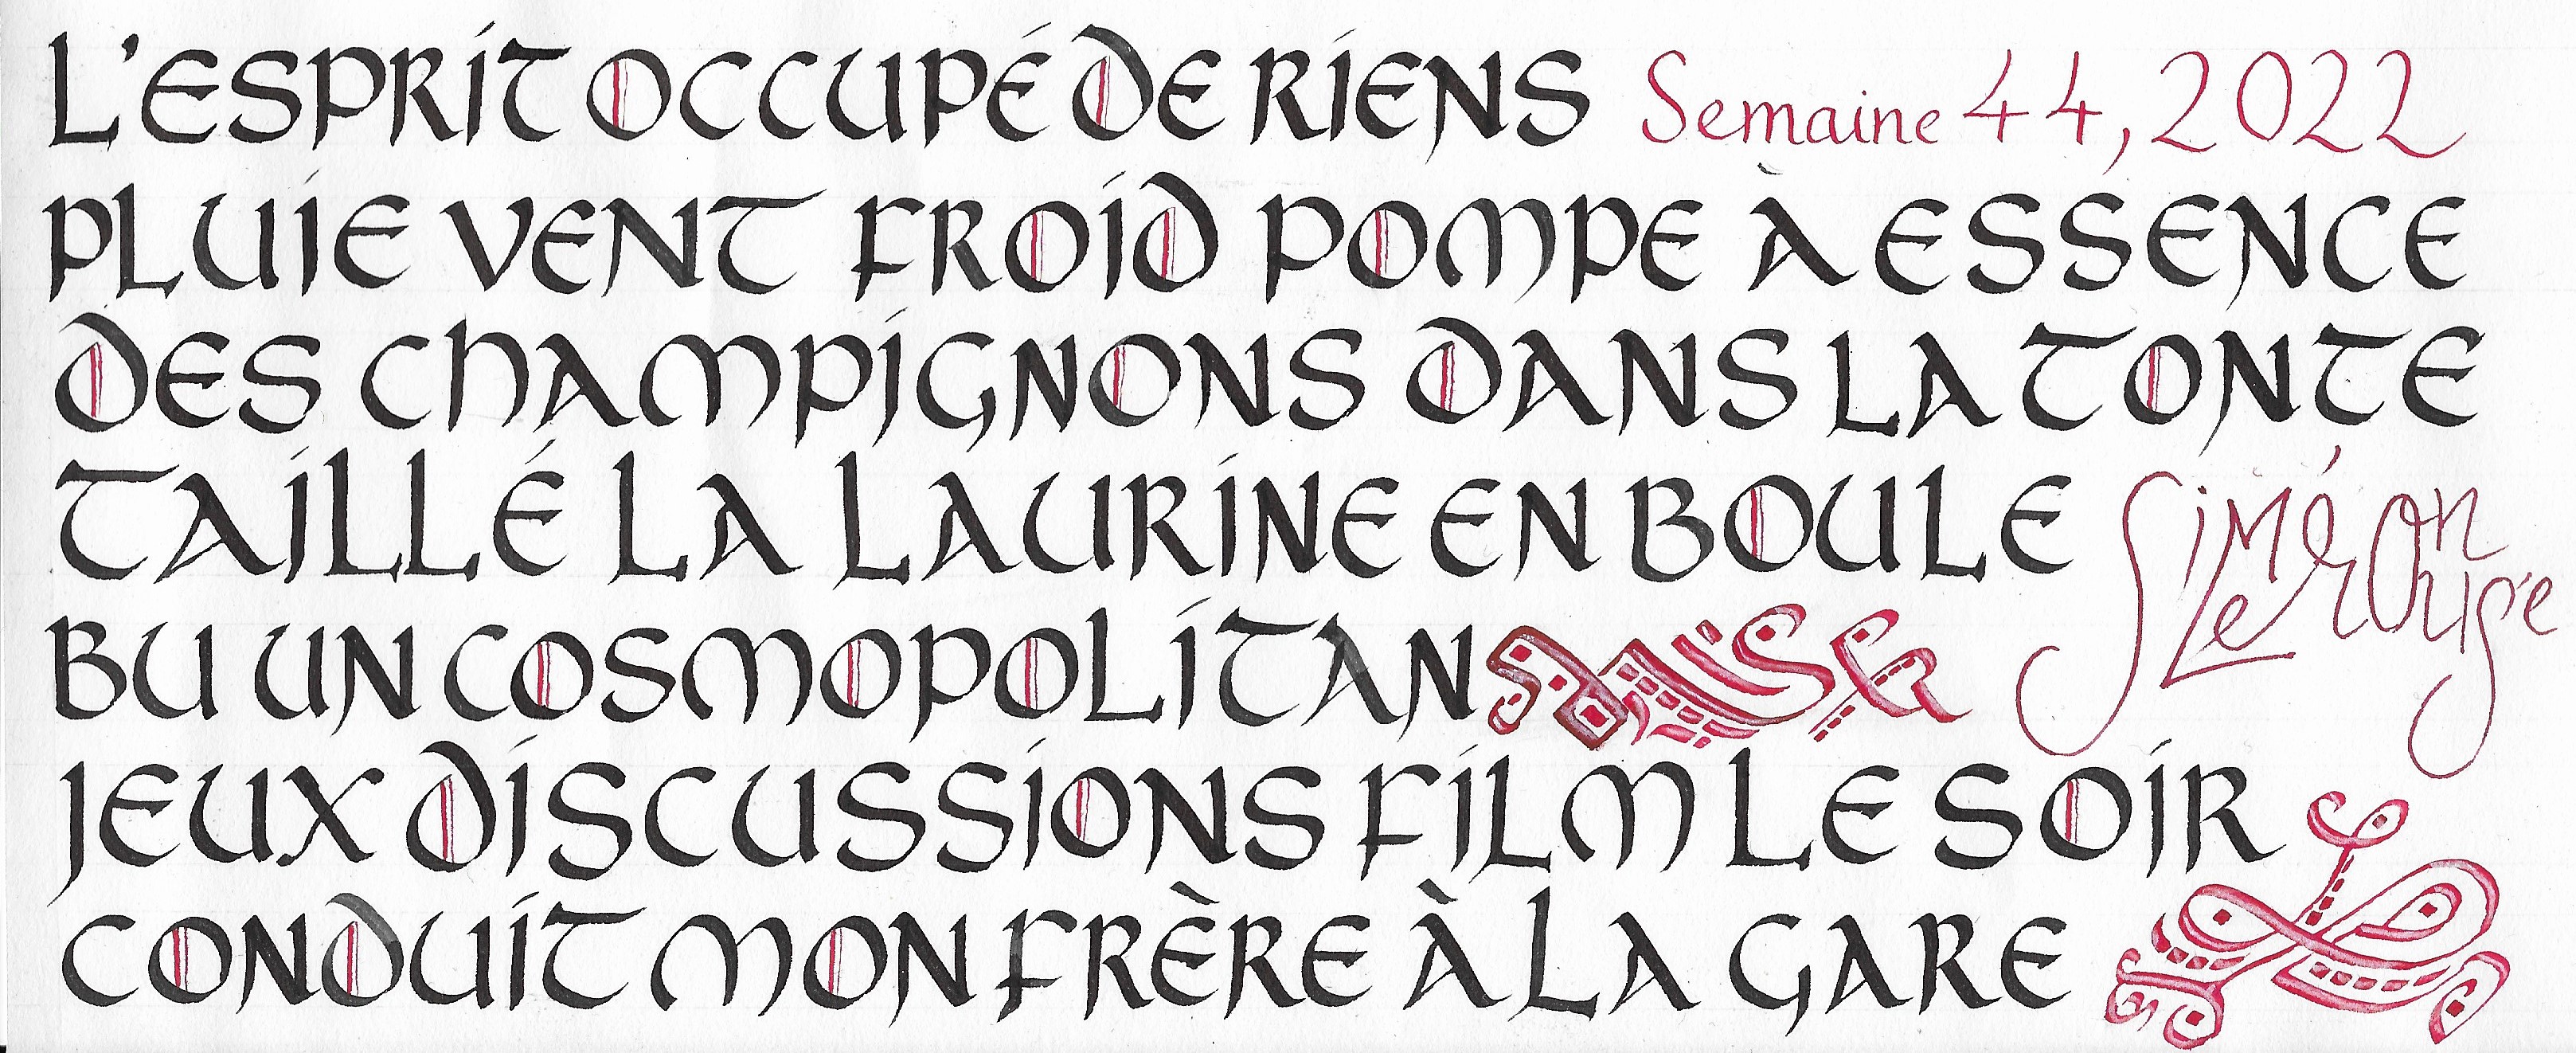 L'ESPRIT OCCUPÉ DE RIENS Semaine 44, 2022
PLUIE VENT FROID POMPE À ESSENCE
DES CHAMPIGNONS DANS LA TONTE
TAILLÉ LA LAURINE EN BOULE
Siméon
Le Rouge
BU UN COSMOPOLITAN
JEUX DISCUSSIONS FILM LE SOIR
CONDUIT MON FRÈRE À LA GARE